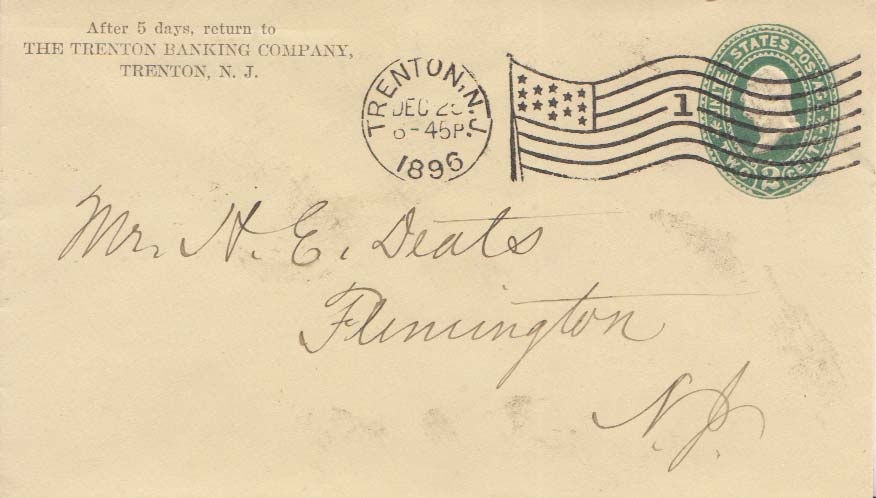 After 5 days, return to
THE TRENTON BANKING COMPANY,
TRENTON, N. J.
TRENTON, N.J.
DEC
6-45P.
1896
1
UNITED STATES POSTAGE
TWO CENTS
2
Mr. H. E. Deats
Flemington
N.J.